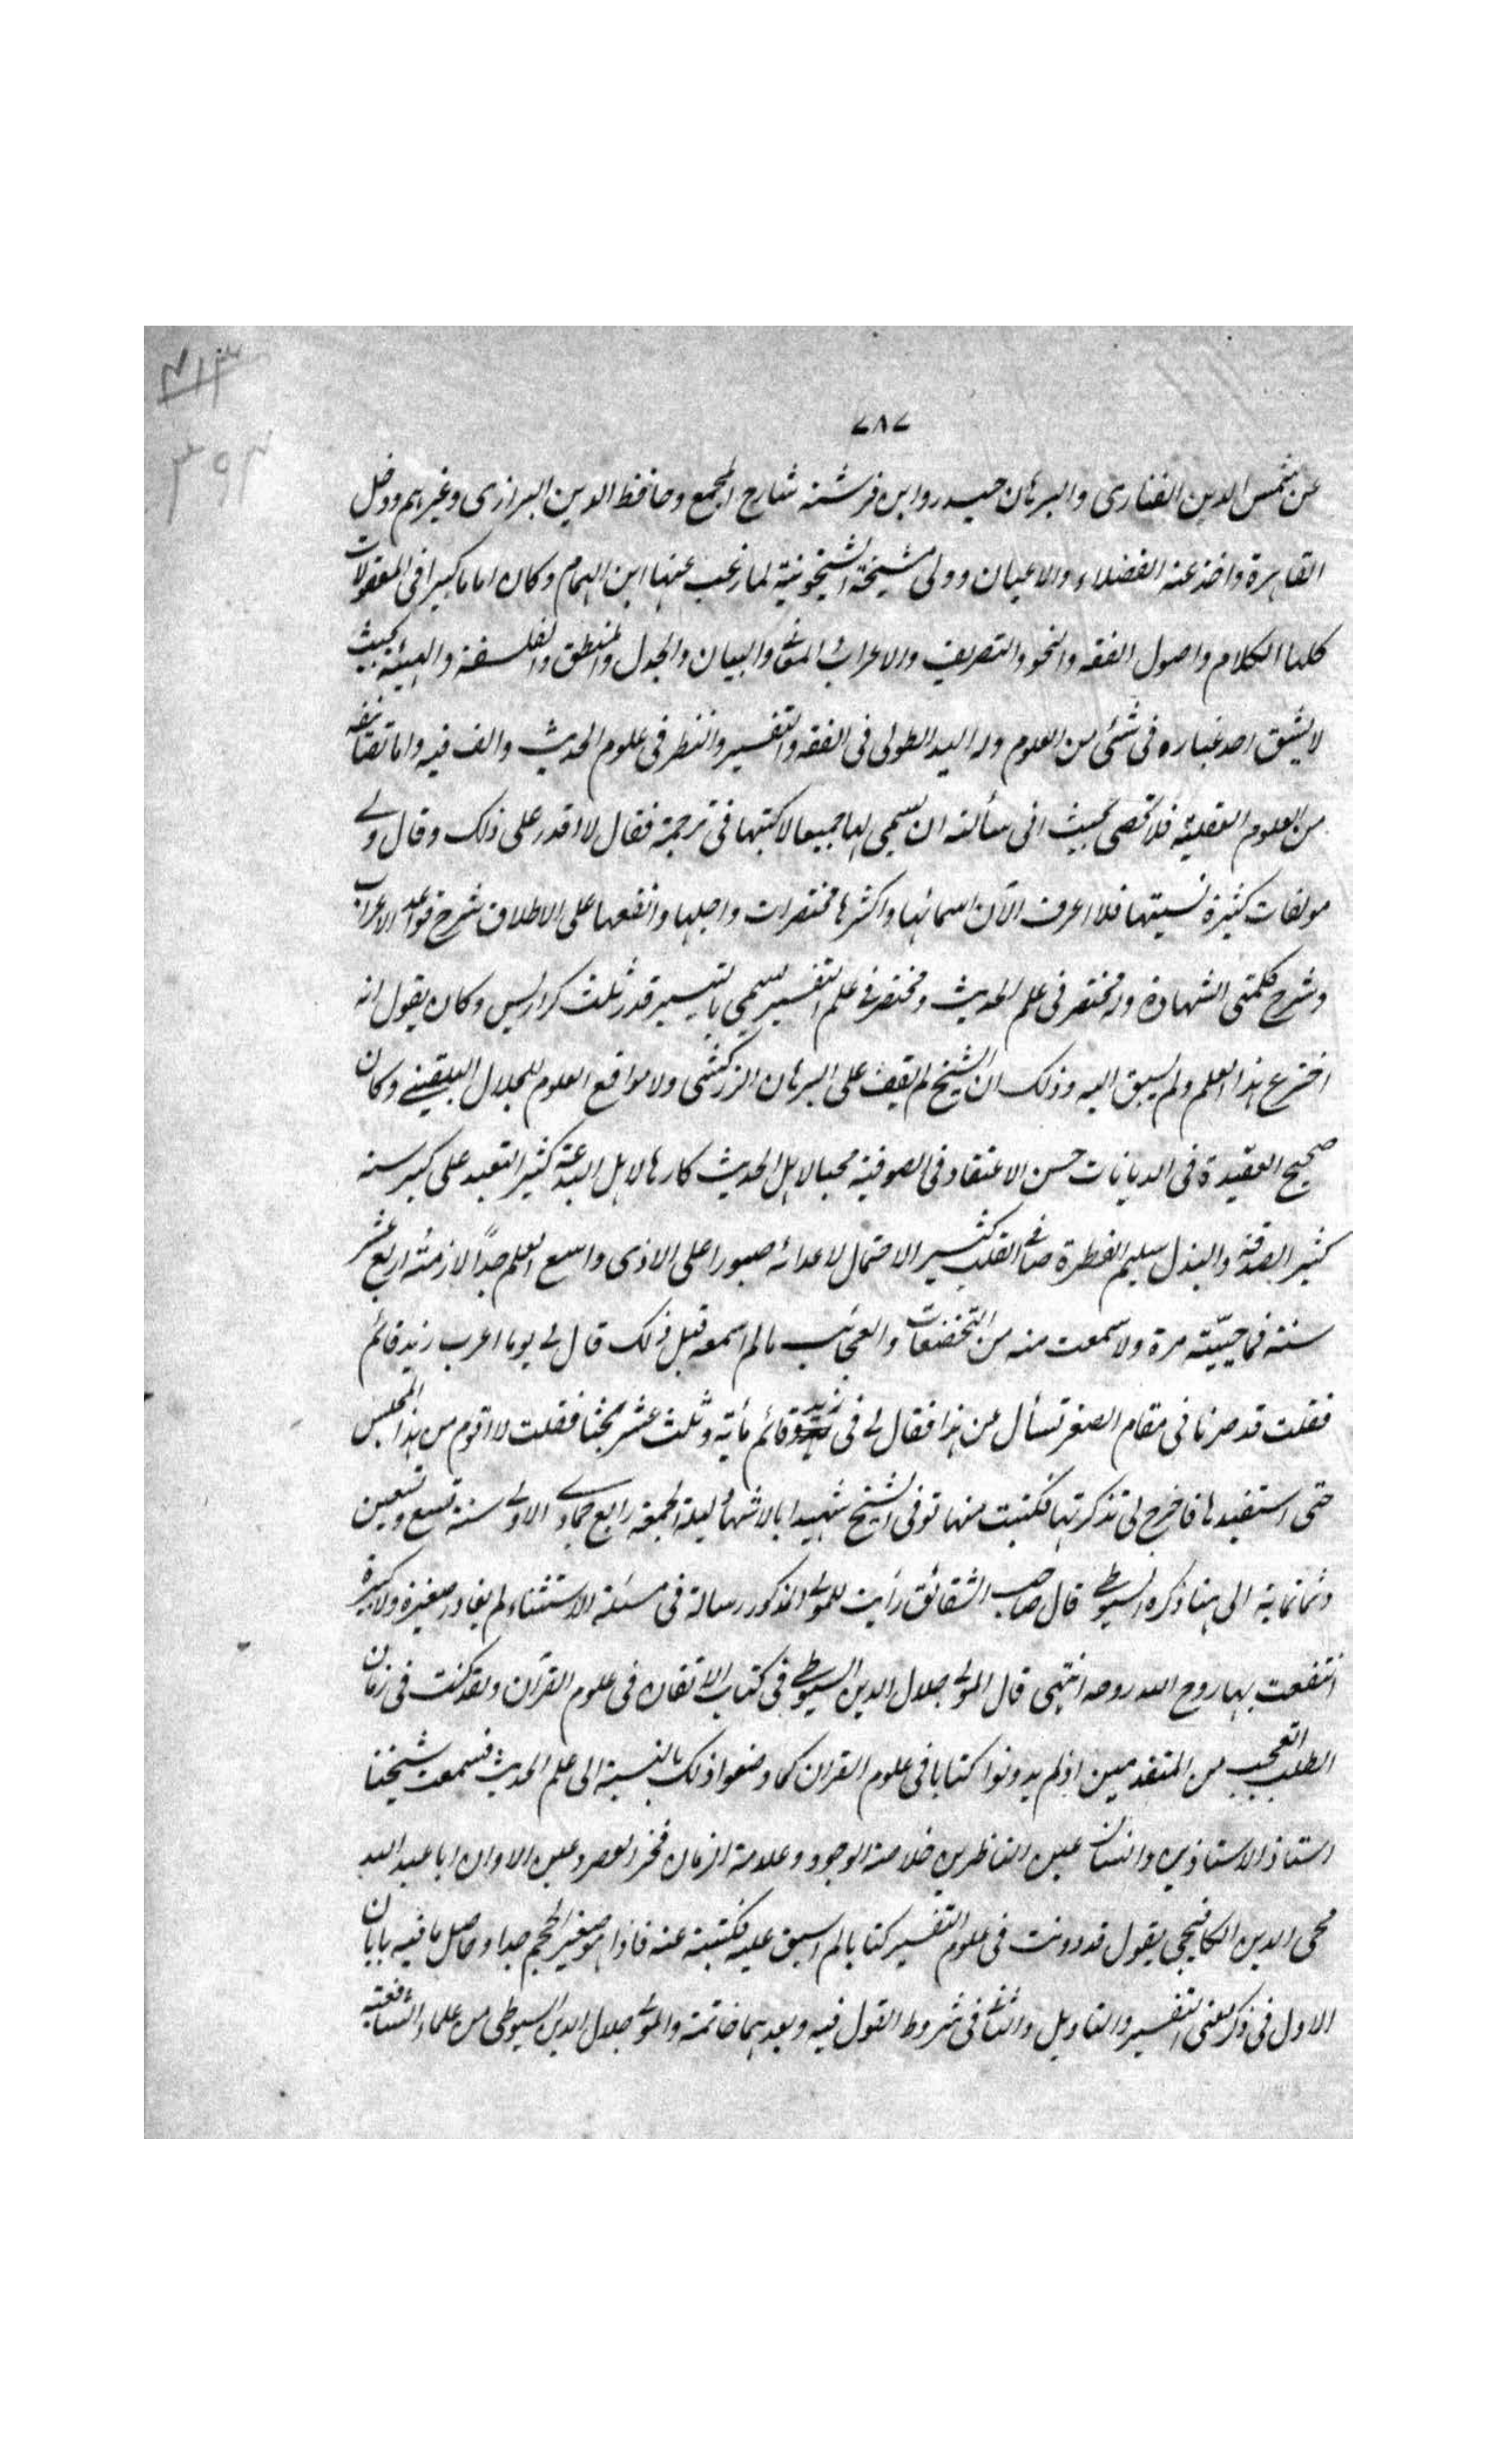 ٧٨٧
عن شمس الدين الفنارى والبرهان حيدر وابن فرشته شارح المجمع وحافظ الدين البزازى وغيرهم ودخل
القاهرة واخذ عنه الفضلاء والاعيان وولى مشيخة الشيخونية لما رغب عنها ابن الهمام وكان اماما كبيرا فى المعقولات
كلها الكلام واصول الفقه والنحو والتصريف والاعراب والمعانى والبيان والجدل والمنطق والفلسفة والهيئة بحيث
لا يشق احد غباره فى شئى من العلوم وله اليد الطولى فى الفقه والتفسير والنظر فى علوم الحديث والف فيه واما تصانيفه
من العلوم العقلية فلا تحصى بحيث انى سألته ان يسمى لها جميعا لاكتبها فى ترجمة فقال لا اقدر على ذلك وقال ولى
مولفات كثيرة نسيتها فلا اعرف الآن اسمائها واكثرها مختصرات واجلها وانفعها على الاطلاق شرح قواعد الاعراب
وشرح كلمتى الشهادة وله مختصر فى علم الحديث ومختصر فى علم التفسير يسمى بالتيسير قدر ثلث كراريس وكان يقول انه
اخترع هذا العلم ولم يسبق اليه وذلك ان الشيخ لم يقف على البرهان للزركشى ولا مواقع العلوم للجلال البلقينى وكان
صحيح العقيدة فى الديانات حسن الاعتقاد فى الصوفية محبا لاهل الحديث كارها لاهل البدعة كثير التعبد على كبر سنه
كثير الصدقة والبذل سليم الفطرة صافى القلب كثير الاحتمال لاعدائه صبورا على الاذى واسع العلم جداً لازمته اربع عشر
سنة فما جيّيته مرة ولا سمعت منه من التحقيقات والعجائب ما لم اسمعه قبل ذلك قال لى يوما اعرب زيد قائم
فقلت قد صرنا فى مقام الصغر تسأل عن هذا فقال لى فى زيد قائم مأية وثلث عشر بحثا فقلت لا اقوم من هذا المجلس
حتى استفيدها فاخرج لى تذكرتها فكتبت منها توفى الشيخ شهيدا بالاسهال ليلة الجمعة رابع جمادى الاولى سنة تسع وتسعين
وثمانماية الى هنا ذكره السيوطى قال صاحب الشقائق رأيت للمولى المذكور رسالة فى مسئلة الاستثناء لم يغادر صغيرة ولا كبيرة
انتفعت بها روح الله روحه انتهى قال المولى جلال الدين السيوطى فى كتاب الاتقان فى علوم القرآن ولقد كنت فى زمان
الطلب اتعجب من المتقدمين اذ لم يدونوا كتابا فى علوم القران كما وضعوا ذلك بالنسبة الى علم الحديث فسمعت شيخنا
استاذ الاستاذين وانسان عين الناظرين خلاصة الوجود وعلامة الزمان فخر العصر وعين الاوان ابا عبد الله
محى الدين الكافيجى يقول قد دونت فى علوم التفسير كتابا لم اسبق عليه فكتبته عنه فاذا هو صغير الحجم جدا وحاصل ما فيه بابان
الاول فى ذكر معنى التفسير والتاويل والثانى فى شروط القول فيه وبعدهما خاتمة والمولى جلال الدين السيوطى من علماء الشافعية